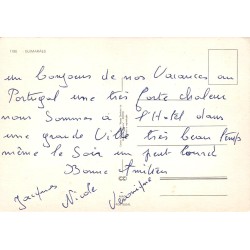 1165 - GUIMARÃES
un bonjour de nos Vacances au
Portugal une très forte chaleur
nous Sommes à l'Hotel dans
une grande Ville très beau temps
même le Soir un peut lourd
Bonne Amitiées
Jacques Nicole Véronique